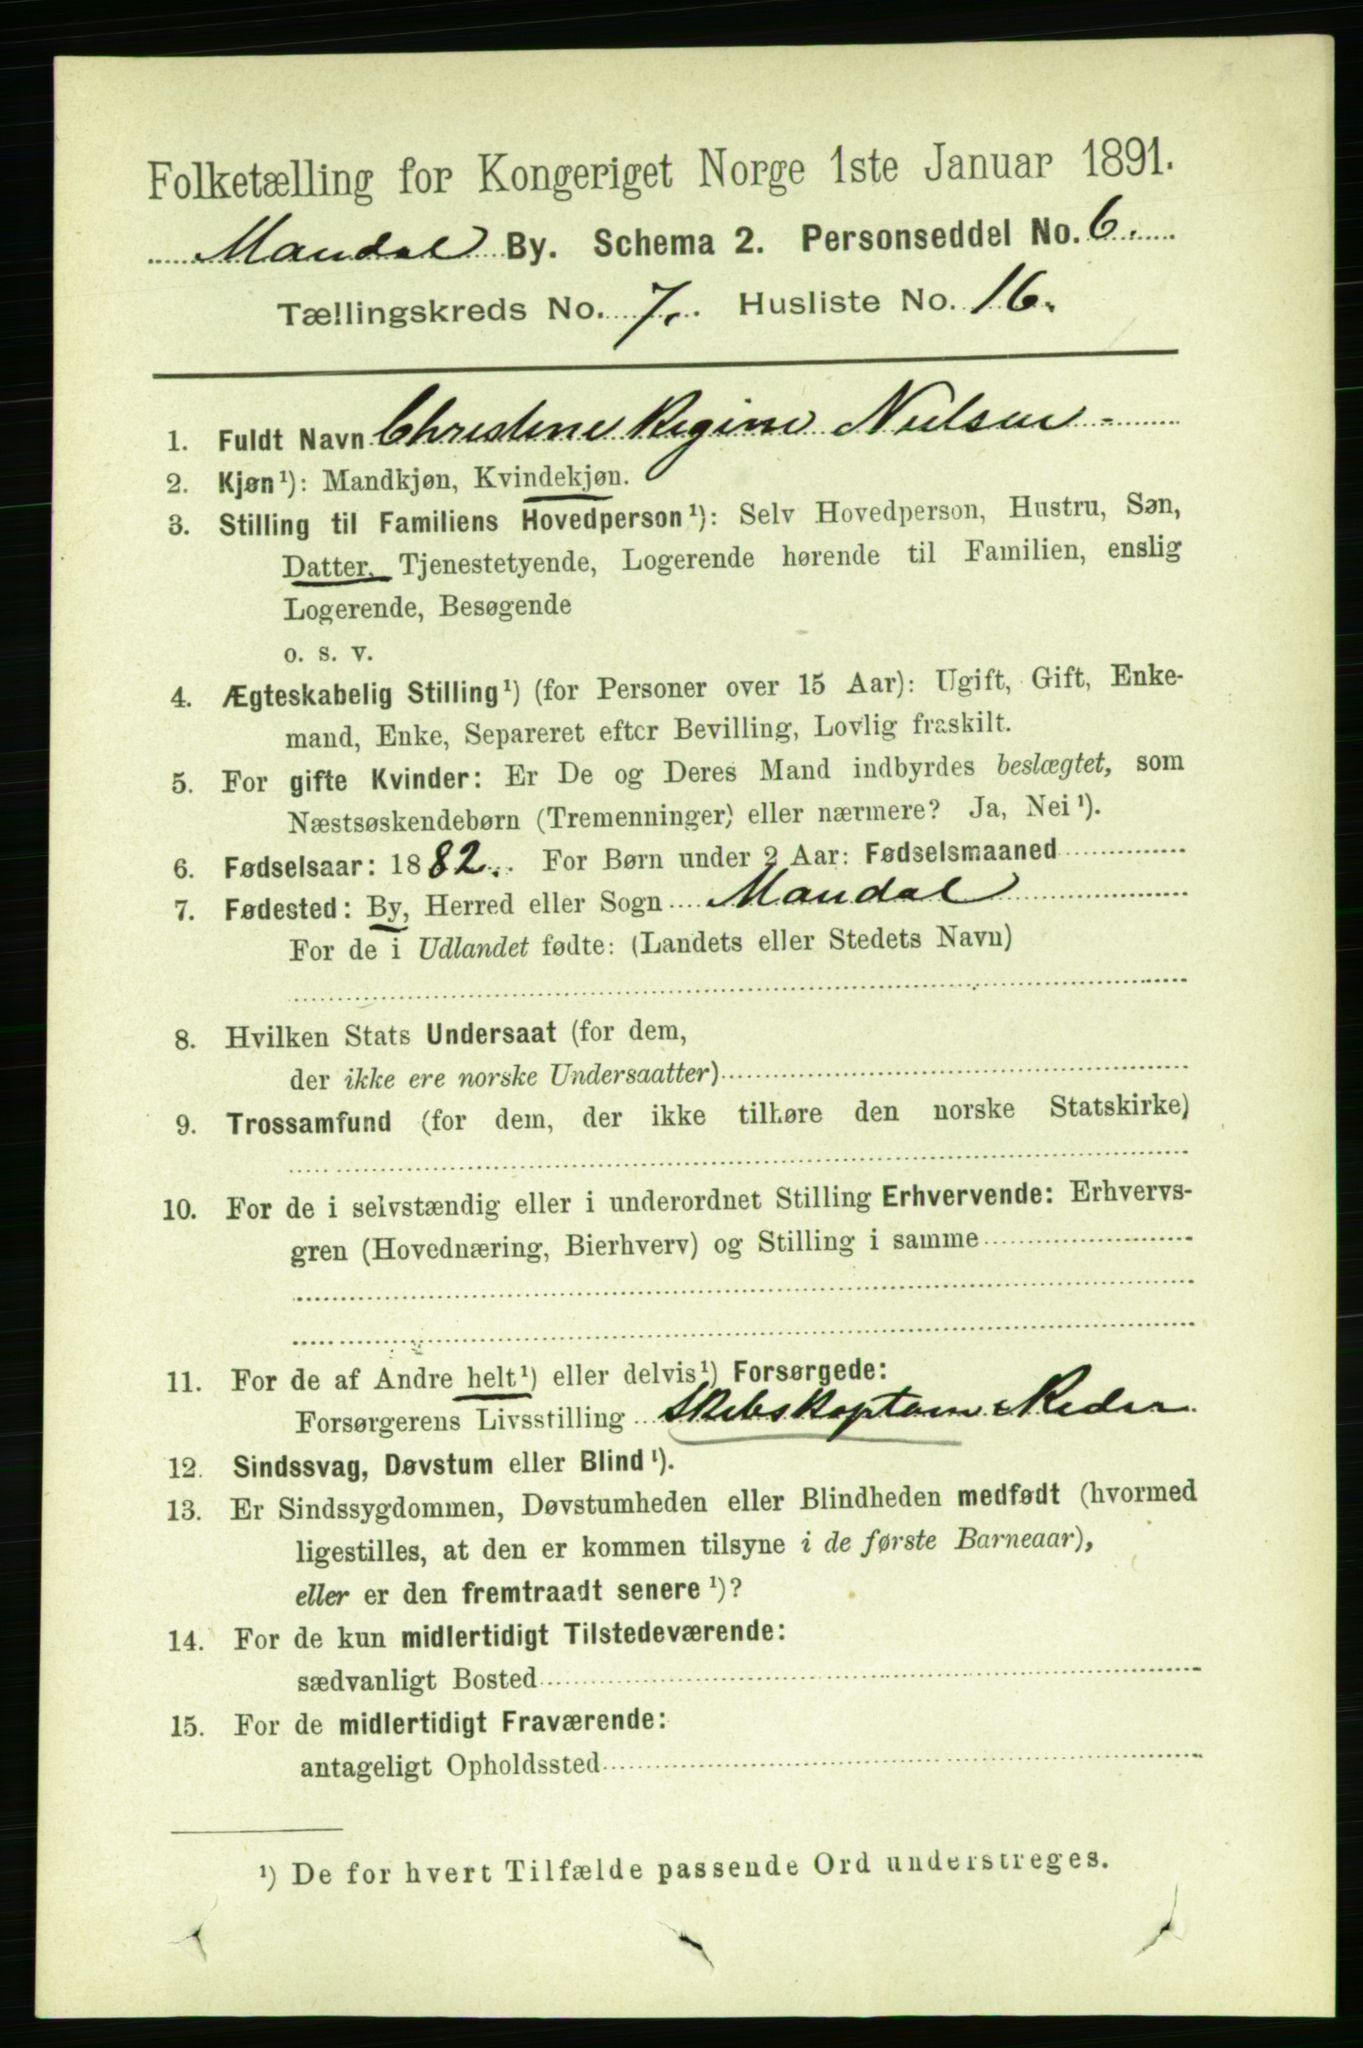 Folketælling for Kongeriget Norge 1ste Januar 1891.
Mandal By. Schema 2. Personseddel No. 6.
Tællingskreds No. 7. Husliste No. 16.
1. Fuldt Navn Christine Regine Nielsen -
2. Kjøn¹): Mandkjøn, Kvindekjøn.
3. Stilling til Familiens Hovedperson¹): Selv Hovedperson, Hustru, Søn,
Datter, Tjenestetyende, Logerende hørende til Familien, enslig
Logerende, Besøgende
o. s. v.
4. Ægteskabelig Stilling¹) (for Personer over 15 Aar): Ugift, Gift, Enke-
mand, Enke, Separeret efter Bevilling, Lovlig fraskilt.
5. For gifte Kvinder: Er De og Deres Mand indbyrdes beslægtet, som
Næstsøskendebørn (Tremenninger) eller nærmere? Ja, Nei¹).
6. Fødselsaar: 1882. For Børn under 2 Aar: Fødselsmaaned
7. Fødested: By, Herred eller Sogn Mandal
For de i Udlandet fødte: (Landets eller Stedets Navn)
8. Hvilken Stats Undersaat (for dem,
der ikke ere norske Undersaatter)
9. Trossamfund (for dem, der ikke tilhøre den norske Statskirke)
10. For de i selvstændig eller i underordnet Stilling Erhvervende: Erhvervs-
gren (Hovednæring, Bierhverv) og Stilling i samme
11. For de af Andre helt¹) eller delvis¹) Forsørgede:
Forsørgerens Livsstilling Skibskaptein & Reder
12. Sindssvag, Døvstum eller Blind¹).
13. Er Sindssygdommen, Døvstumheden eller Blindheden medfødt (hvormed
ligestilles, at den er kommen tilsyne i de første Barneaar),
eller er den fremtraadt senere¹)?
14. For de kun midlertidigt Tilstedeværende:
sædvanligt Bosted
15. For de midlertidigt Fraværende:
antageligt Opholdssted
¹) De for hvert Tilfælde passende Ord understreges.